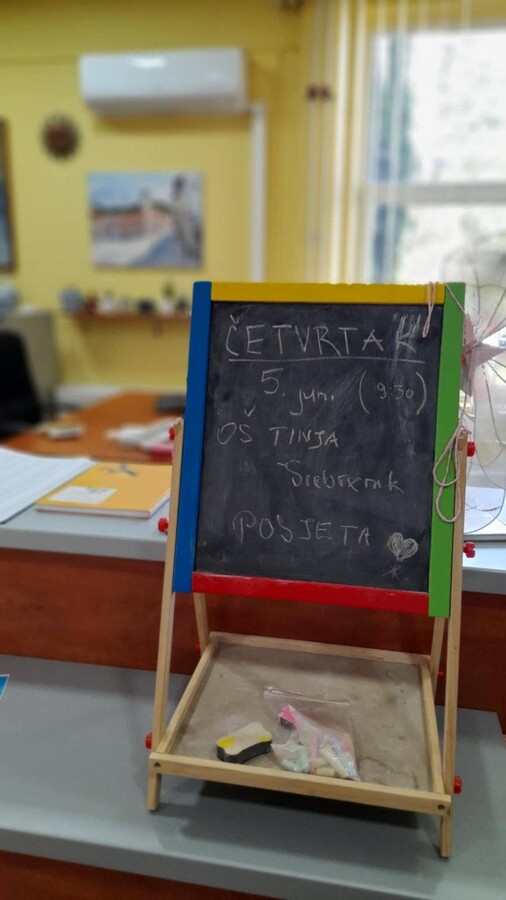 ČETVRTAK
5. juni (9:30)
OŠ TINJA
Srebrenik
POSJETA